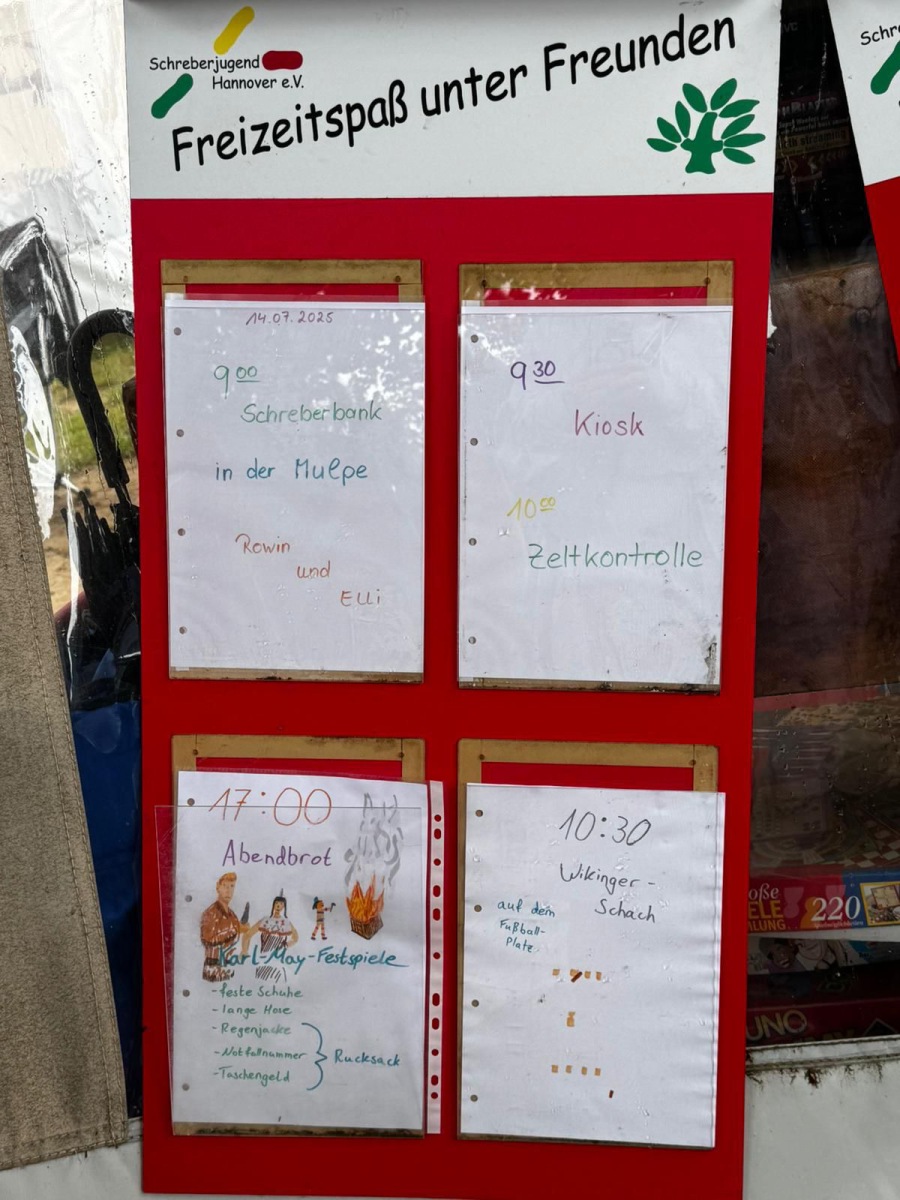 Schreberjugend
Hannover e.V.
Freizeitspaß unter Freunden
14.07.2025
9 00
Schreberbank
in der Mulpe
Rowin
und
Elli
9 30
Kiosk
10 00
Zeltkontrolle
17:00
Abendbrot
Karl-May-Festspiele
- feste Schuhe
- lange Hose
- Regenjacke
- Notfallnummer
- Taschengeld
Rucksack
10:30
Wikinger-
Schach
auf dem
Fußball-
Platz
220
UNO